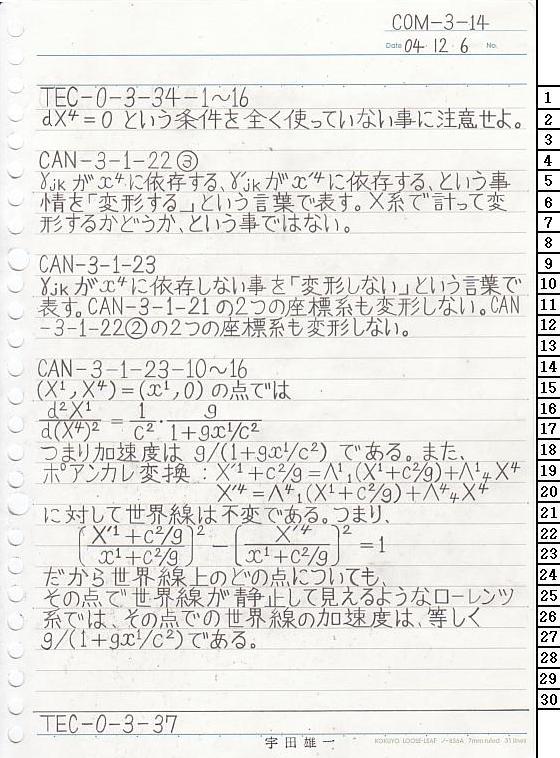 COM-3-14
Date 04・12・6 No.
TEC-0-3-34-1〜16
dX⁴=0 という条件を全く使っていない事に注意せよ。
CAN-3-1-22③
γjkがx⁴に依存する、γ'jkがx'⁴に依存する、という事
情を「変形する」という言葉で表す。X系で計って変
形するかどうか、という事ではない。
CAN-3-1-23
γjkがx⁴に依存しない事を「変形しない」という言葉で
表す。CAN-3-1-21の2つの座標系も変形しない。CAN
-3-1-22②の2つの座標系も変形しない。
CAN-3-1-23-10〜16
(X¹, X⁴)=(x¹, 0) の点では
d²X¹/d(X⁴)² = 1/c² · g/(1+gx¹/c²)
つまり加速度は g/(1+gx¹/c²) である。また、
ポアンカレ変換 : X'¹+c²/g=Λ¹₁(X¹+c²/g)+Λ¹₄X⁴
X'⁴=Λ⁴₁(X¹+c²/g)+Λ⁴₄X⁴
に対して世界線は不変である。つまり、
[(X'¹+c²/g)/(x¹+c²/g)]² − [X'⁴/(x¹+c²/g)]² = 1
だから世界線上のどの点についても、
その点で世界線が静止して見えるようなローレンツ
系では、その点での世界線の加速度は、等しく
g/(1+gx¹/c²)である。
TEC-0-3-37
宇田雄一
KOKUYO LOOSE-LEAF ノ-836A 7mm ruled 31 lines
1
2
3
4
5
6
7
8
9
10
11
12
13
14
15
16
17
18
19
20
21
22
23
24
25
26
27
28
29
30